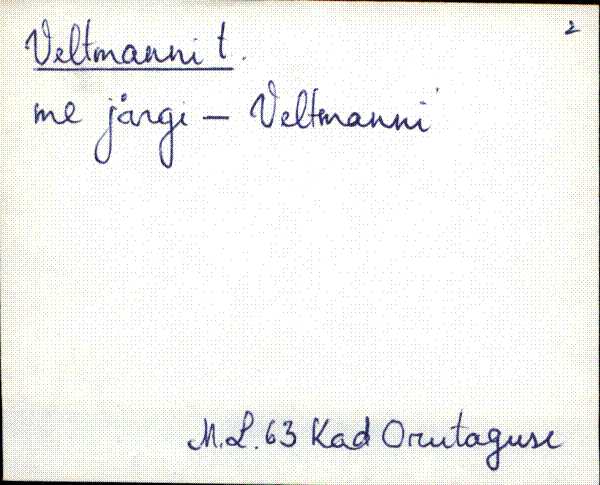 2
Veltmanni t.
me järgi – Veltmanni
M.L. 63 Kad Orutaguse